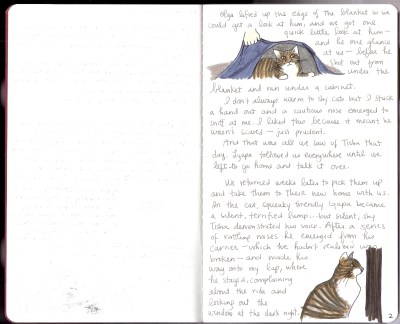 Olga lifted up the edge of the blanket so we
could get a look at him, and we got one
quick little look at him—
and he one glance
at us — before he
shot out from
under the
blanket and ran under a cabinet.
I don't always warm to shy cats but I stuck
a hand out and a cautious nose emerged to
sniff at me. I liked this because it meant he
wasn't scared — just prudent.
And that was all we saw of Tisha that
day. Lyapa followed us everywhere until we
left to go home and talk it over.
We returned weeks later to pick them up
and take them to their new home with us.
In the car, squeaky friendly Lyapa became
a silent, terrified lump... but silent, shy
Tisha demonstrated his voice. After a series
of rattling noises he emerged from his
carrier — which we hadn't realized was
broken — and made his
way onto my lap, where
he stayed, complaining
about the ride and
looking out the
window at the dark night.
2